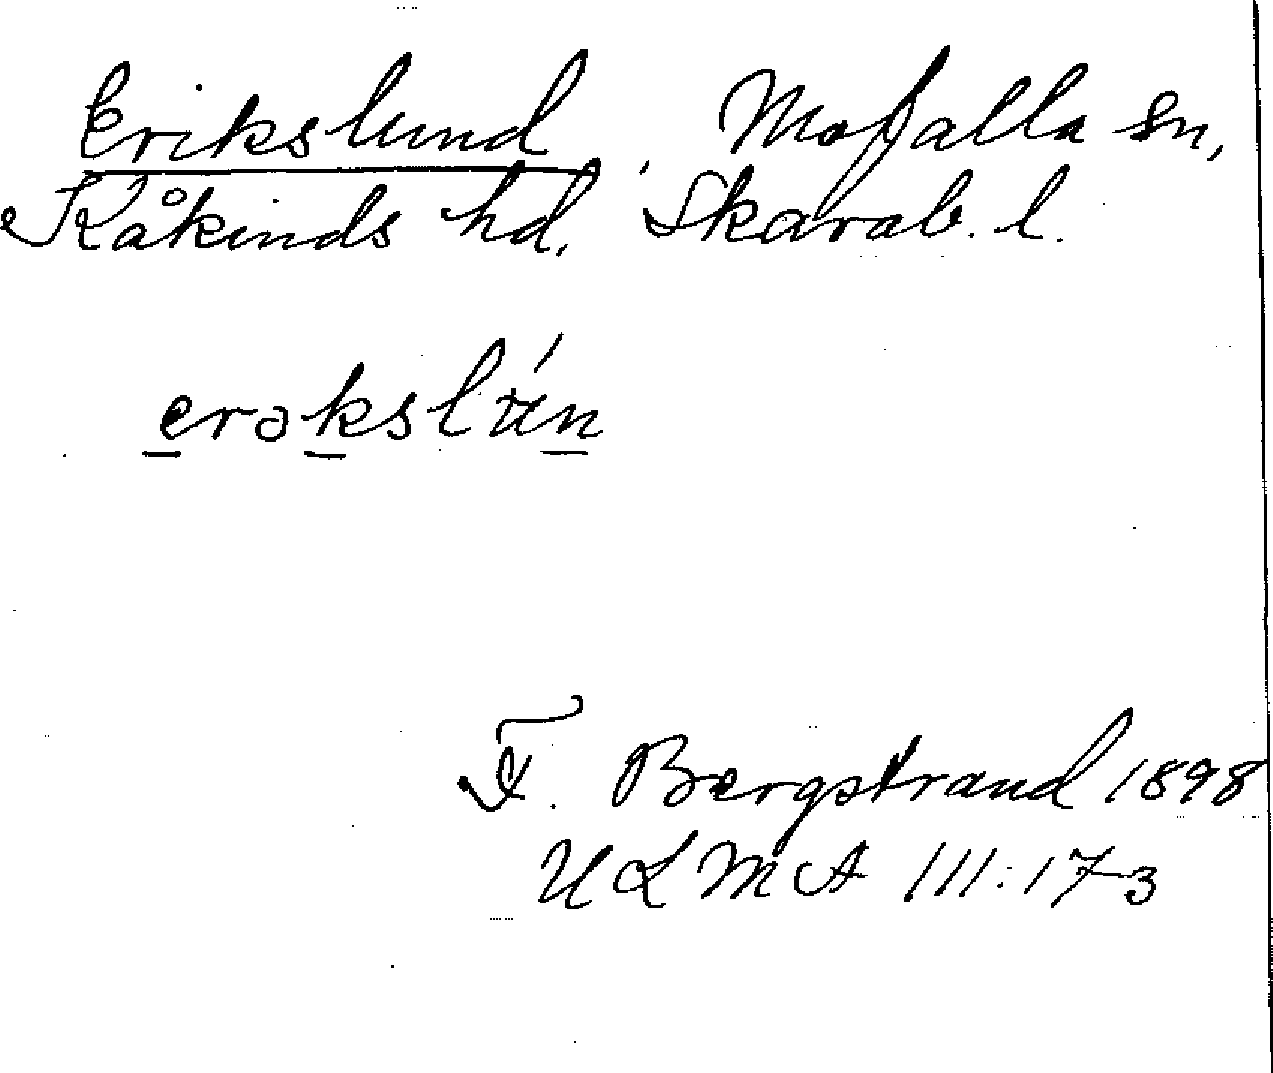 Erikslund, Mofalla sn,
Kåkinds hd. Skarab. l.
erəkslún
F. Bergstrand 1898
ULMA 111:173